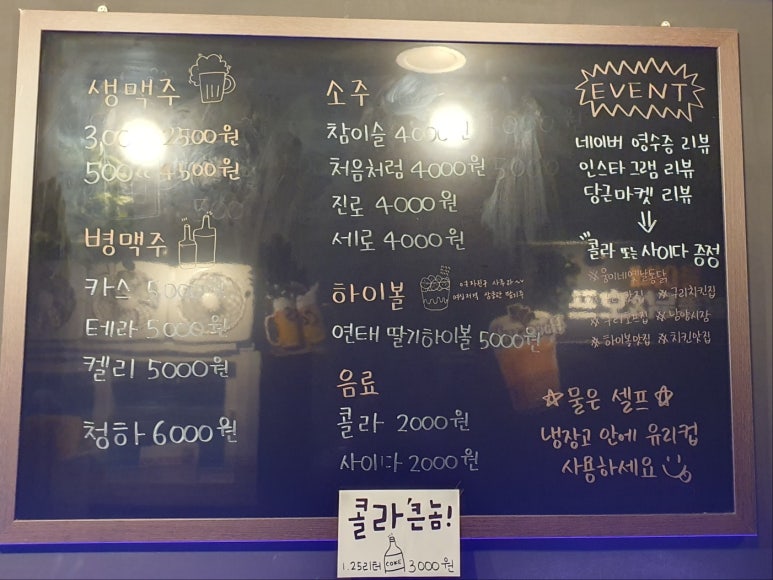 생맥주
2500원
500 4500원
병맥주
카스 5000
테라 5000원
켈리 5000원
청하 6000원
소주
참이슬 4000원
처음처럼 4000원
진로 4000원
세로 4000원
하이볼
연태 딸기하이볼 5000원
음료
콜라 2000원
사이다 2000원
EVENT
네이버 영수증 리뷰
인스타그램 리뷰
당근마켓 리뷰
콜라 또는 사이다 증정
※웅이네옛날통닭
※구리치킨집
※남양시장
※하이볼맛집 ※치킨맛집
물은 셀프
냉장고 안에 유리컵
사용하세요
콜라 큰놈!
COKE
1.25리터 3000원